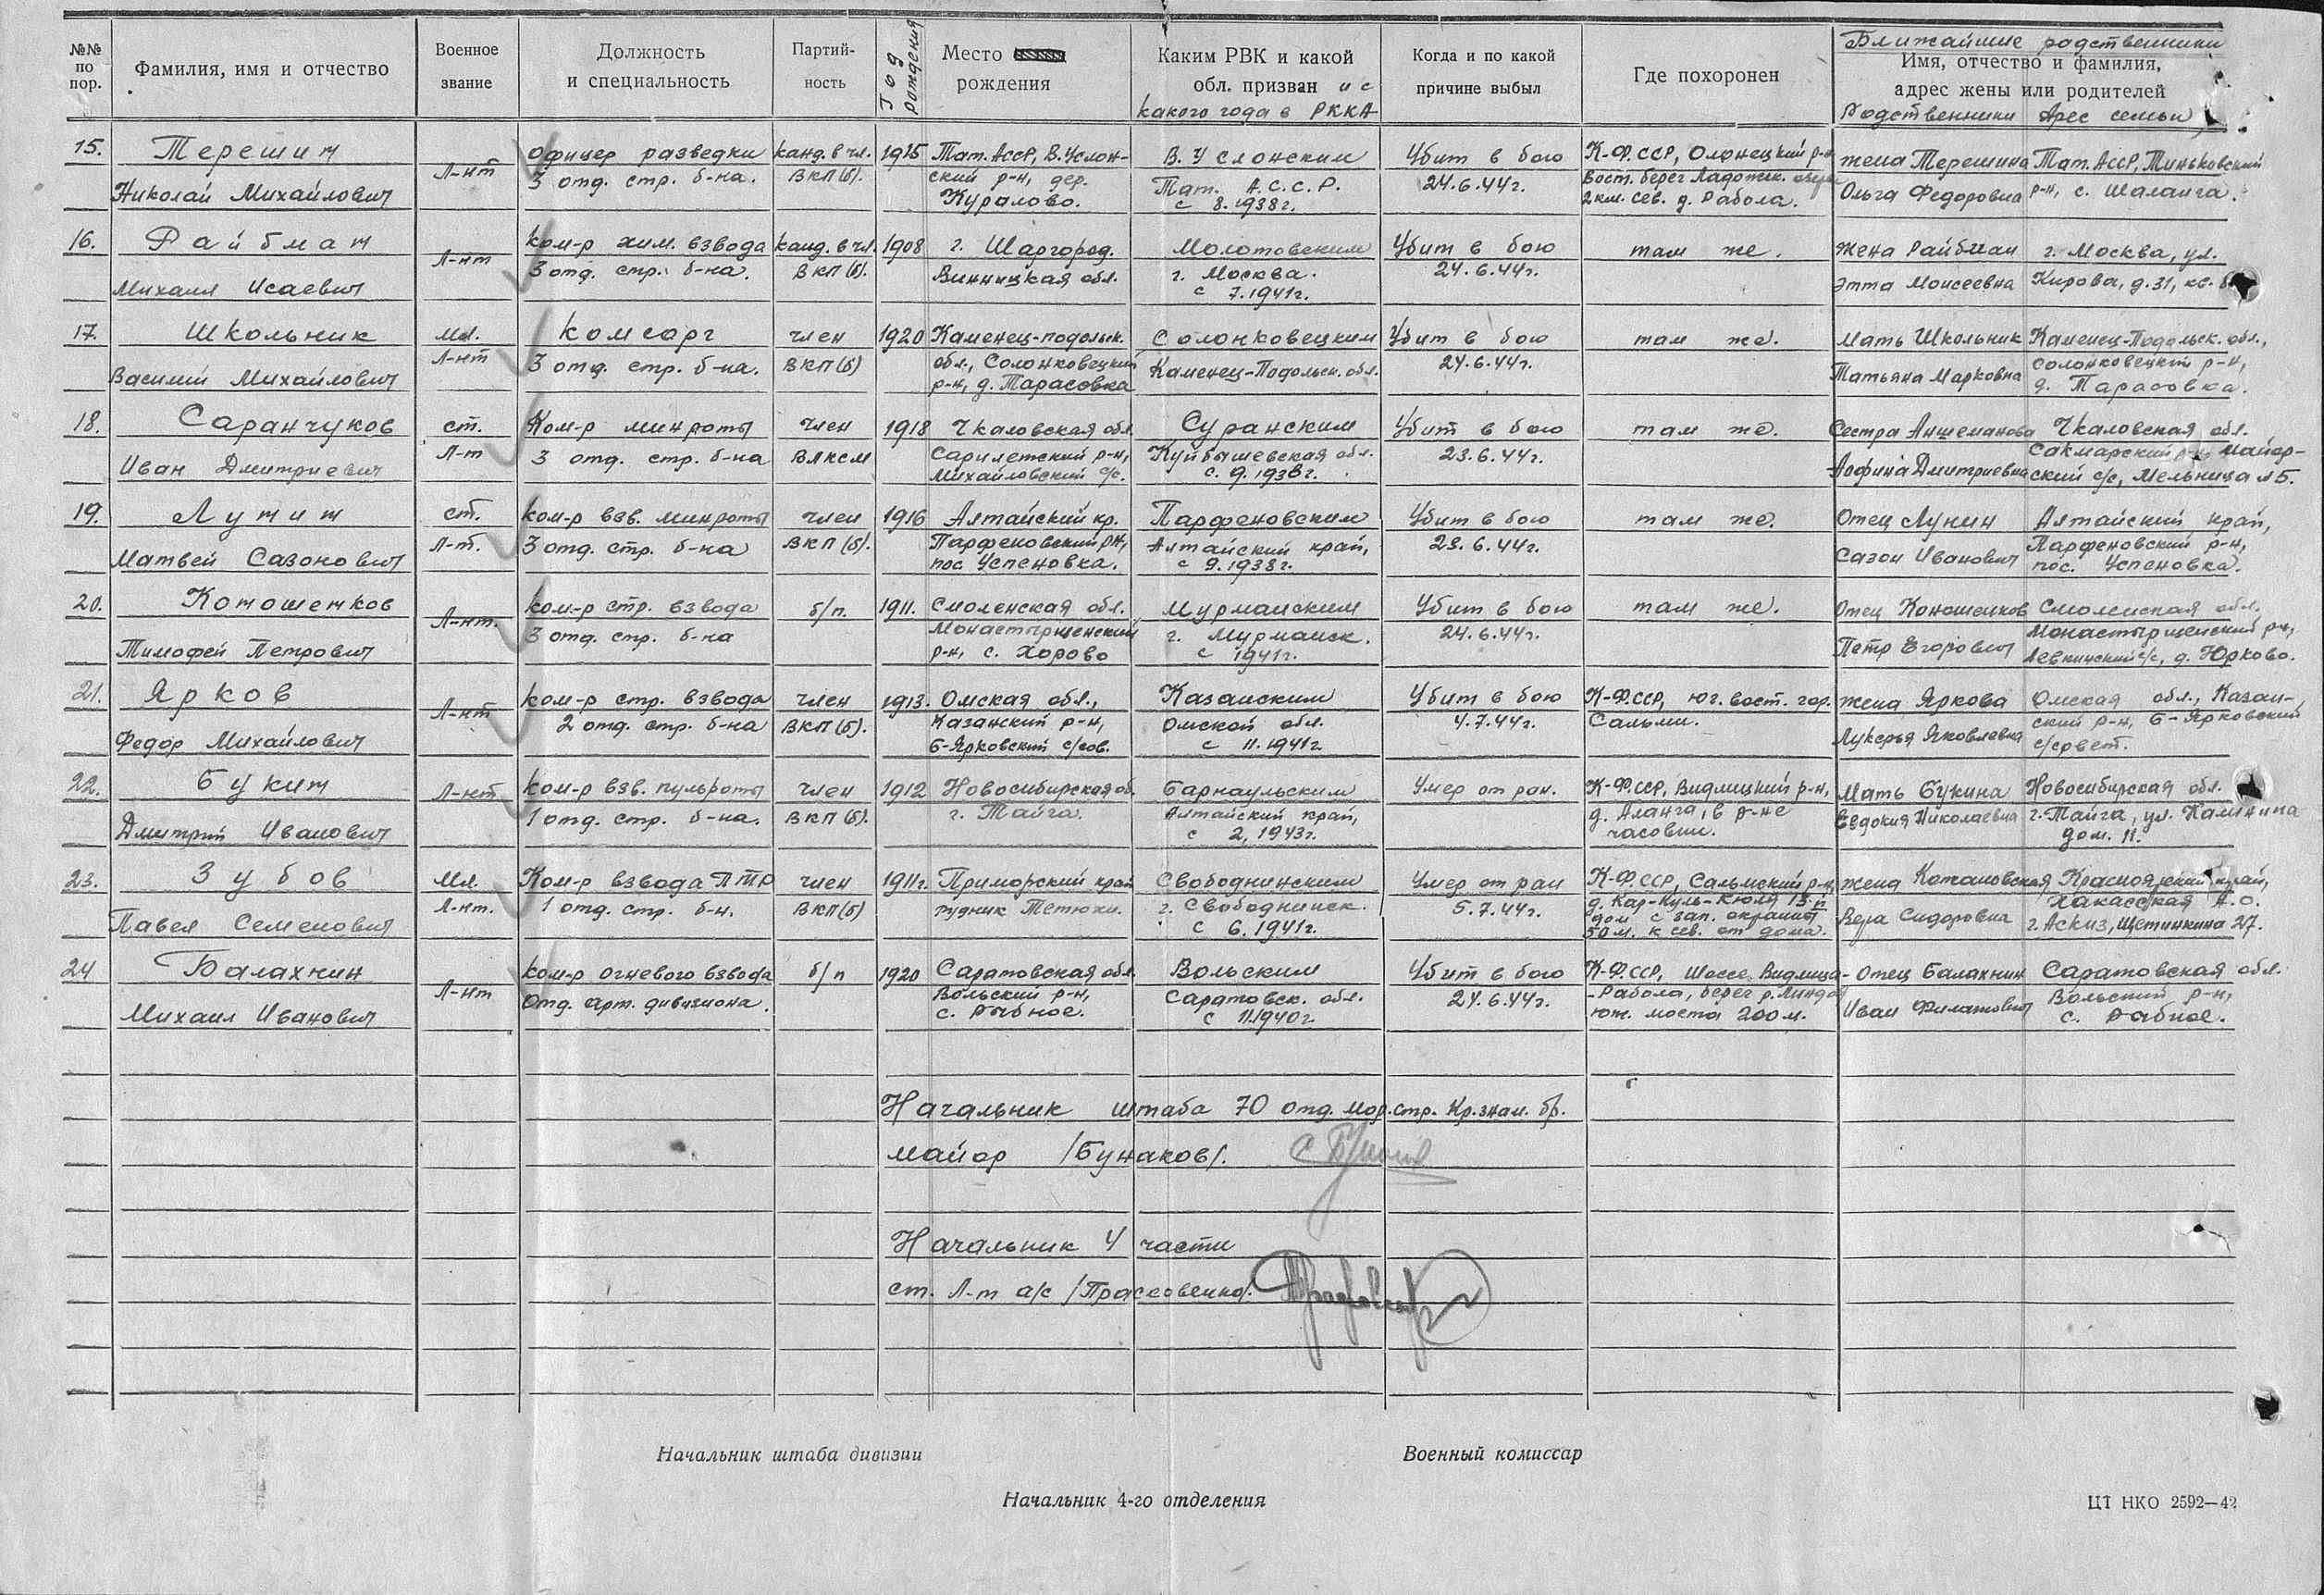 №№ по пор.
Фамилия, имя и отчество
Военное звание
Должность и специальность
Партий-ность
Год рождения
Место рождения
Каким РВК и какой обл. призван и с какого года в РККА
Когда и по какой причине выбыл
Где похоронен
Ближайшие родственники
Имя, отчество и фамилия,
адрес жены или родителей
Родственники Арес семьи
15. Терешин Офицер разведки канд. в чл. 1915 Тат. АССР, В. Услон- В. Услонским Убит в бою К-Ф.ССР, Олонецкий р-н жена Терешина Тат. АССР, Тиньковский
Николай Михайлович Л-нт 3 отд. стр. б-на. ВКП(б). ский р-н, дер. Куралово. Тат. А.С.С.Р. с 8.1938г. 24.6.44г. Вост. берег Ладожск. озера 2 км. сев. д. Рабола. Ольга Федоровна р-н, с. Шаланга.
16. Райбман ком-р хим. взвода канд. в чл. 1908 г. Шаргород. Молотовским Убит в бою там же. жена Райбман г. Москва, ул.
Михаил Исаевич Л-нт 3 отд. стр. б-на. ВКП(б). Винницкая обл. г. Москва. с 7.1941г. 24.6.44г. Этта Моисеевна Кирова, д. 31, кв.
17. Школьник Мл. комсорг член 1920 Каменец-подольск. Солонковецким Убит в бою там же. Мать Школьник Каменец-Подольск. обл.,
Василий Михайлович Л-нт 3 отд. стр. б-на. ВКП(б) обл., Солонковецкий р-н, д. Тарасовка Каменец-Подольск. обл. 24.6.44г. Татьяна Марковна Солонковецкий р-н, д. Тарасовка.
18. Саранчуков ст. Ком-р минроты член 1918 Чкаловская обл. Суранским Убит в бою там же. Сестра Аншеманова Чкаловская обл.
Иван Дмитриевич Л-т 3 отд. стр. б-на ВЛКСМ Михайловский с/с. Куйбышевская обл. с 9.1938г. 23.6.44г. Дмитриевна Сакмарский р-н, Майор-ский с/с, Мельница №5.
19. Лунин ст. ком-р взв. минроты член 1916 Алтайский кр. Парфеновским Убит в бою там же. Отец Лунин Алтайский край,
Матвей Сазонович Л-т. 3 отд. стр. б-на ВКП(б). Парфеновский р-н, пос Успеновка. Алтайский край, с 9.1938г. 23.6.44г. Сазон Иванович Парфеновский р-н, пос. Успеновка.
20. Коношенков ком-р стр. взвода б/п. 1911. Смоленская обл. Мурманским Убит в бою там же. Отец Коношенков Смоленская обл.
Тимофей Петрович Л-нт. 3 отд. стр. б-на Монастырщенский р-н, с. Хорово г. Мурманск. с 1941г. 24.6.44г. Петр Егорович Монастырщенский р-н, Левкинский с/с, д. Юрково.
21. Ярков ком-р стр. взвода член 1913. Омская обл., Казанским Убит в бою К-Ф.ССР, юг. вост. гор. жена Яркова Омская обл., Казан-
Федор Михайлович Л-нт 2 отд. стр. б-на ВКП(б). Казанский р-н, Б-Ярковский с/сов. Омской обл. с 11.1941г. 4.7.44г. Сальми. Лукерья Яковлевна ский р-н, Б-Ярковский с/совет.
22. Букин Л-нт ком-р взв. пульроты член 1912 Новосибирская об. Барнаульским Умер от ран. К-Ф.ССР, Видлицкий р-н, Мать Букина Новосибирская обл.
Дмитрий Иванович 1 отд. стр. б-на. ВКП(б). г. Тайга. Алтайский край, с 2, 1943г. д. Аланга, в р-не часовни. Евдокия Николаевна г. Тайга, ул. Калинина дом. 11.
23. Зубов Мл. Ком-р взвода ПТР член 1911г. Приморский край Свободнинским Умер от ран К-Ф.ССР, Сальмский р-н, жена Котановская Красноярский край,
Павел Семенович Л-нт. 1 отд. стр. б-н. ВКП(б) рудник Тетюхи. г. Свободнинск. с 6.1941г. 5.7.44г. д. Кар-Куль-Кюля 13-й дом с зап. окраины 50 м. к сев. от дома. Вера Сидоровна Хакасская А.О. г. Аскиз, Щетинкина 27.
24 Балахнин ком-р огневого взвода б/п 1920 Саратовская обл. Вольским Убит в бою К-Ф.ССР, Шоссе Видлица- Отец Балахнин Саратовская обл.
Михаил Иванович Л-нт Отд. арт. дивизиона. Вольский р-н, с. Рыбное. Саратовск. обл. с 11.1940г. 24.6.44г. -Рабола, берег р. Линда юж. моста 200 м. Иван Филатович Вольский р-н, с. Рабное.
Начальник штаба 70 отд. мор. стр. Кр. знам. бр.
майор /Бунаков/.
Начальник 4 части
ст. Л-т а/с /Прасковенко/.
Начальник штаба дивизии
Военный комиссар
Начальник 4-го отделения
ЦТ НКО 2592—42